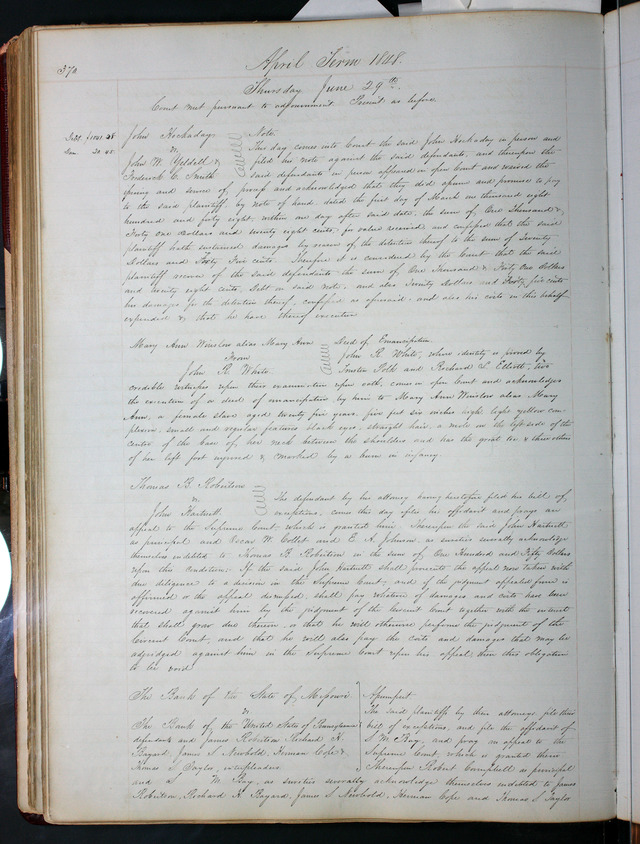 374
April Term 1848.
Thursday June 29th.
Court met pursuant to adjournment. Present as before
Debt. $1041.28
Dam 20.45
John Hockaday
vs
John W. Yeldell &
Frederick C. Smith
Note.
This day comes into Court the said John Hockaday in person and
filed his note against the said defendants, and thereupon the
said defendants in person appeared in open Court and waived the
issuing and service of process and acknowledged that they did assume and promise to pay
to the said plaintiff by note of hand dated the first day of March one thousand eight
hundred and forty eight, within one day after said date, the sum of One Thousand &
Forty one dollars and twenty eight cents, for value received, and confessed that the said
plaintiff hath sustained damages by reason of the detention thereof to the sum of Twenty
Dollars and Forty Five cents. Therefore it is considered by the Court that the said
plaintiff recover of the said defendants the sum of One Thousand & Forty one dollars
and twenty eight cents, debt on said note, and also Twenty Dollars and Forty five cents
his damages for the detention thereof, confessed as aforesaid, and also his costs in this behalf
expended & that he have thereof execution
Mary Ann Winslow alias Mary Ann
From
John R. White
Deed of Emancipation
John R. White, whose identity is proved by
Trusten Polk and Richard S. Elliott, two
credible witnesses upon their examination upon oath, comes in open Court and acknowledges
the execution of a deed of emancipation by him to Mary Ann Winslow alias Mary
Ann, a female slave aged twenty five years, five feet six inches high, light yellow com
plexion, small and regular features, black eyes, straight hair, a mole on the left side of the
center of the base of her neck between the shoulders and has the great toe & three others
of her left foot injured & marked by a burn in infancy.
Thomas B. Robertson
vs
John Hartnett
The defendant by his attorney having heretofore filed his bill of
exceptions, comes this day files his affidavit and prays an
appeal to the Supreme Court which is granted him. Thereupon the said John Hartnett
as principal and Oscar W. Collet and E. A. Johnson as sureties severally acknowledge
themselves indebted to Thomas B. Robertson in the sum of One Hundred and Fifty dollars
upon this condition: If the said John Hartnett shall prosecute the appeal now taken with
due diligence to a decision in the Supreme Court, and if the judgment appealed from is
affirmed or the appeal dismissed, shall pay whatever of damages and costs have been
recovered against him by the judgment of the Circuit Court together with the interest
that shall grow due thereon, or that he will otherwise perform the judgment of the
Circuit Court, and that he will also pay the costs and damages that may be
adjudged against him in the Supreme Court upon his appeal, then this obligation
to be void
The Bank of the State of Missouri
vs
The Bank of the United States of Pennsylvania
defendants and James Robertson, Richard H.
Bayard, James S. Newbold, Herman Cope &
Thomas S. Taylor, interpleaders
Assumpsit
The said plaintiffs by their attorneys file their
bill of exceptions, and file the affidavit of
S. M. Bay, and pray an appeal to the
Supreme Court, which is granted them
Thereupon Robert Campbell as principal
and S. M. Bay, as sureties severally acknowledge themselves indebted to James
Robertson, Richard H. Bayard, James S. Newbold, Herman Cope and Thomas S. Taylor